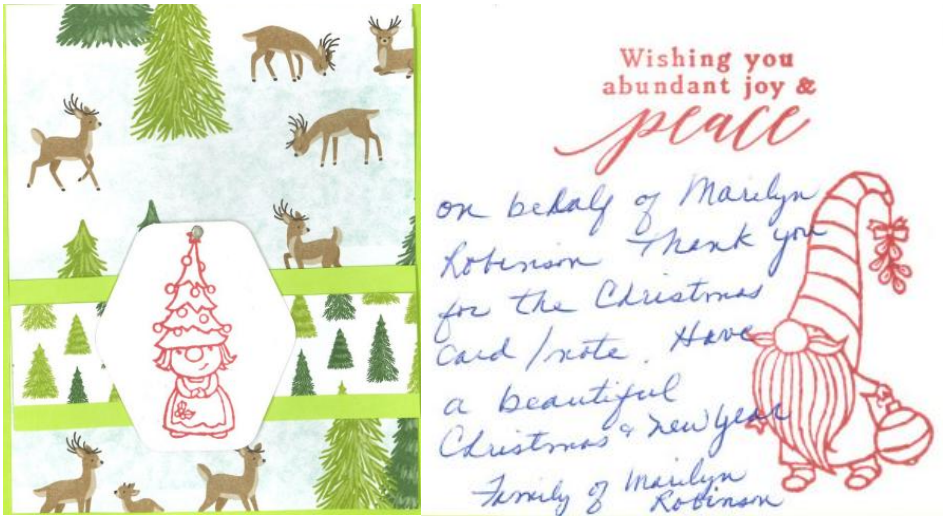 Wishing you
abundant joy &
peace
on behalf of Marilyn
Robinson Thank you
for the Christmas
Card/note. Have
a beautiful
Christmas & New Year
Family of Marilyn
Robinson